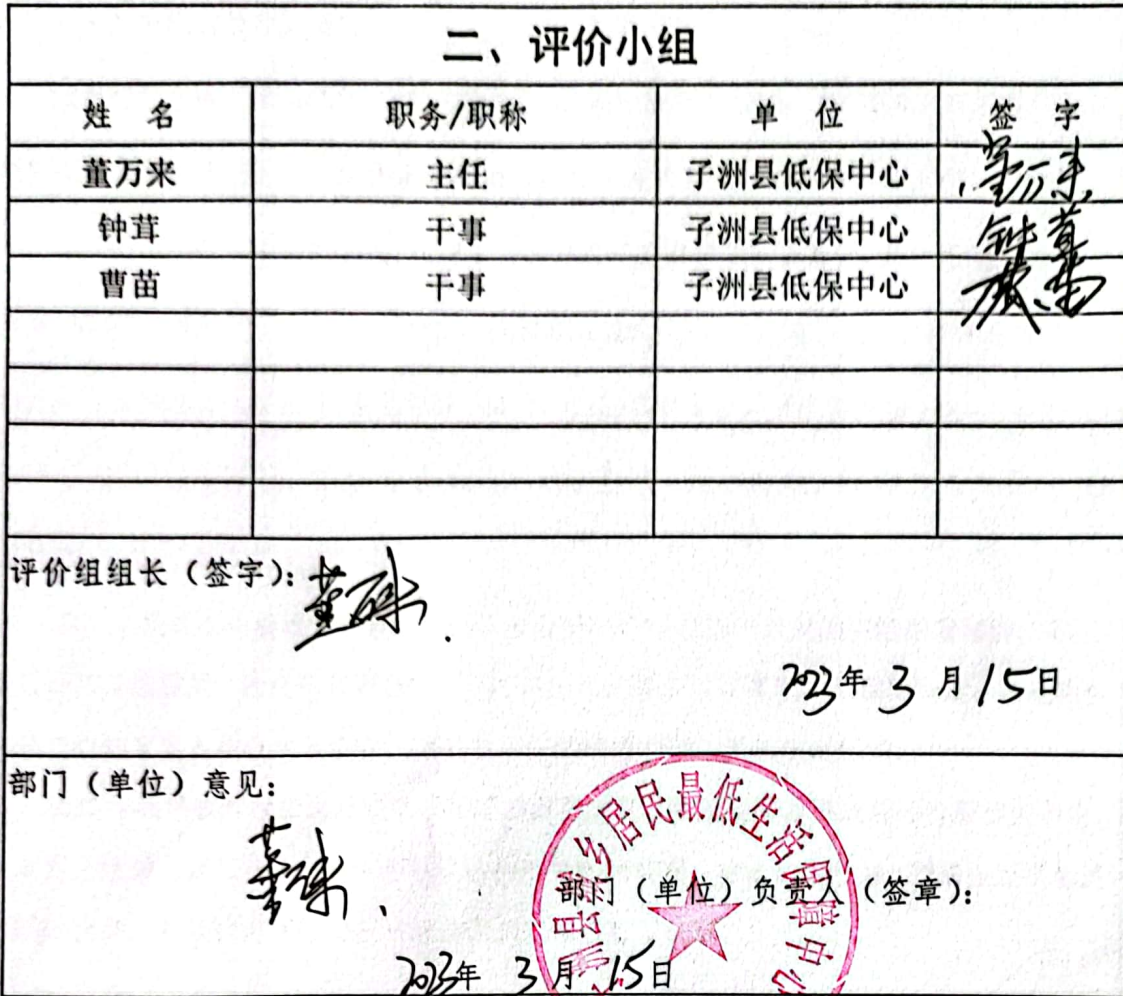 二、评价小组
姓 名 职务/职称 单 位 签 字
董万来 主任 子洲县低保中心 董万来
钟茸 干事 子洲县低保中心 钟茸
曹苗 干事 子洲县低保中心
评价组组长（签字）：董万来
2023年 3 月 15日
部门（单位）意见：
董万来
部门（单位）负责人（签章）：
2023年 3 月 15日
居民最低生活保障中心